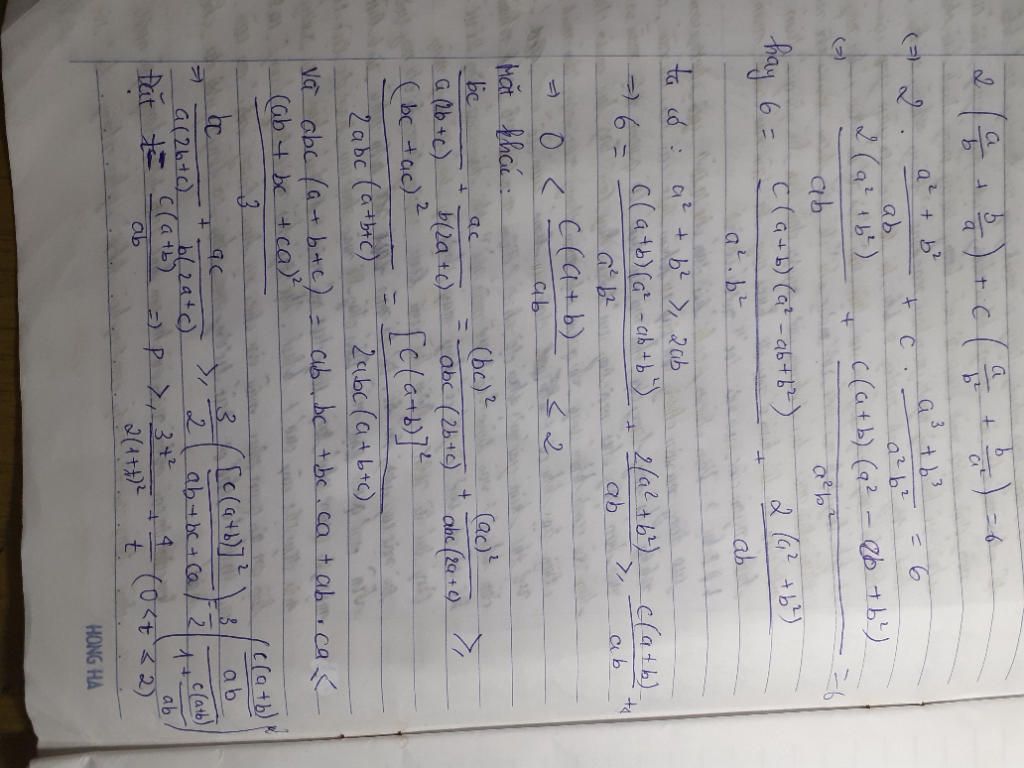 2 (a/b + b/a) + c (a/b² + b/a²) = 6
(=) 2 . (a² + b²)/ab + c . (a³ + b³)/(a²b²) = 6
(=) 2(a² + b²)/ab + c(a+b)(a² - ab + b²)/(a²b²) = 6
hay 6 = c(a+b)(a² - ab + b²)/(a².b²) + 2(a² + b²)/ab
ta có : a² + b² ≥ 2ab
=> 6 = c(a+b)(a² - ab + b²)/(a²b²) + 2(a² + b²)/ab ≥ c(a+b)/ab + 4
=> 0 < c(a+b)/ab ≤ 2
Mặt khác :
bc/(a(2b+c)) + ac/(b(2a+c)) = (bc)²/(abc(2b+c)) + (ac)²/(abc(2a+c)) ≥
(bc + ac)²/(2abc(a+b+c)) = [c(a+b)]²/(2abc(a+b+c))
Và abc(a+b+c) = ab.bc + bc.ca + ab.ca ≤
(ab + bc + ca)²/3
=> bc/(a(2b+c)) + ac/(b(2a+c)) ≥ 3/2 ([c(a+b)]²/(ab+bc+ca)) = 3/2 ((c(a+b)/ab)/(1 + c(a+b)/ab))²
Đặt t = c(a+b)/ab => P ≥ 3t²/(2(1+t)²) + 4/t (0 < t ≤ 2)
HONG HA